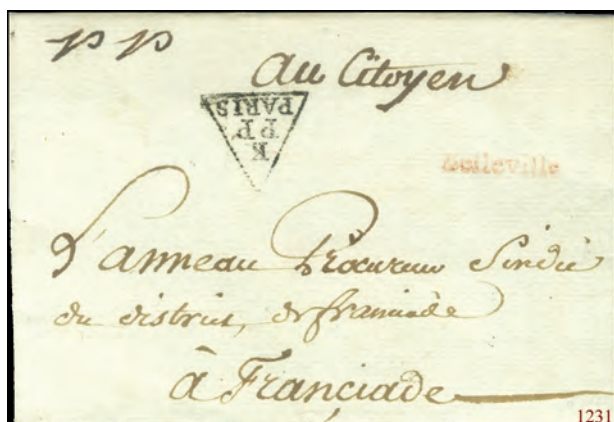 pp
Au Citoyen
PARIS
PP
K
Belleville
L'anneau Procureur Sindic
du district, de franciade
à Franciade
1231